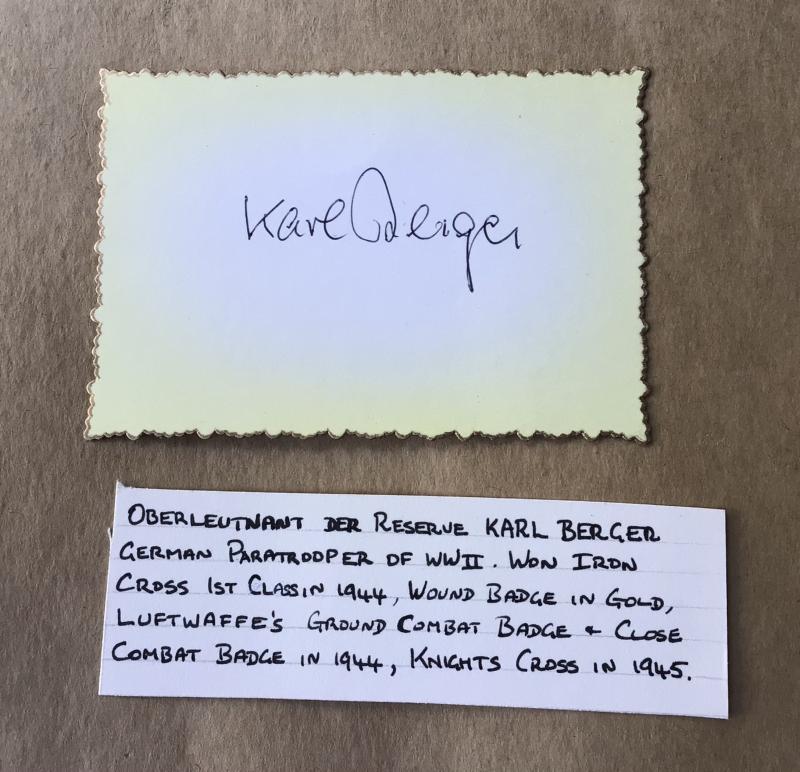 Karl Berger
OBERLEUTNANT DER RESERVE KARL BERGER
GERMAN PARATROOPER OF WWII. WON IRON
CROSS 1ST CLASS IN 1944, WOUND BADGE IN GOLD,
LUFTWAFFE'S GROUND COMBAT BADGE & CLOSE
COMBAT BADGE IN 1944, KNIGHTS CROSS IN 1945.